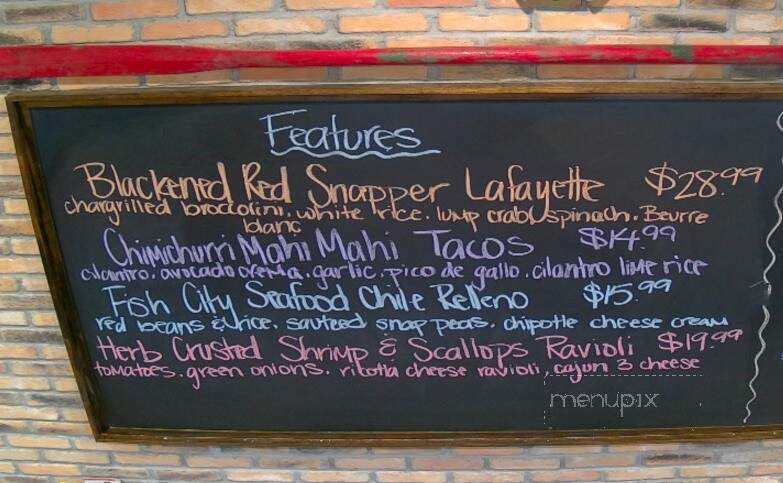 Features
Blackened Red Snapper Lafayette $28.99
chargrilled broccolini. white rice. lump crab, spinach. Beurre
blanc
Chimichurri Mahi Mahi Tacos $14.99
cilantro. avocado crema. garlic. pico de gallo. cilantro lime rice
Fish City Seafood Chile Relleno $15.99
red beans & rice. sauteed snap peas. chipotle cheese cream
Herb Crusted Shrimp & Scallops Ravioli $19.99
tomatoes. green onions. ricotta cheese ravioli, cajun 3 cheese
menupix